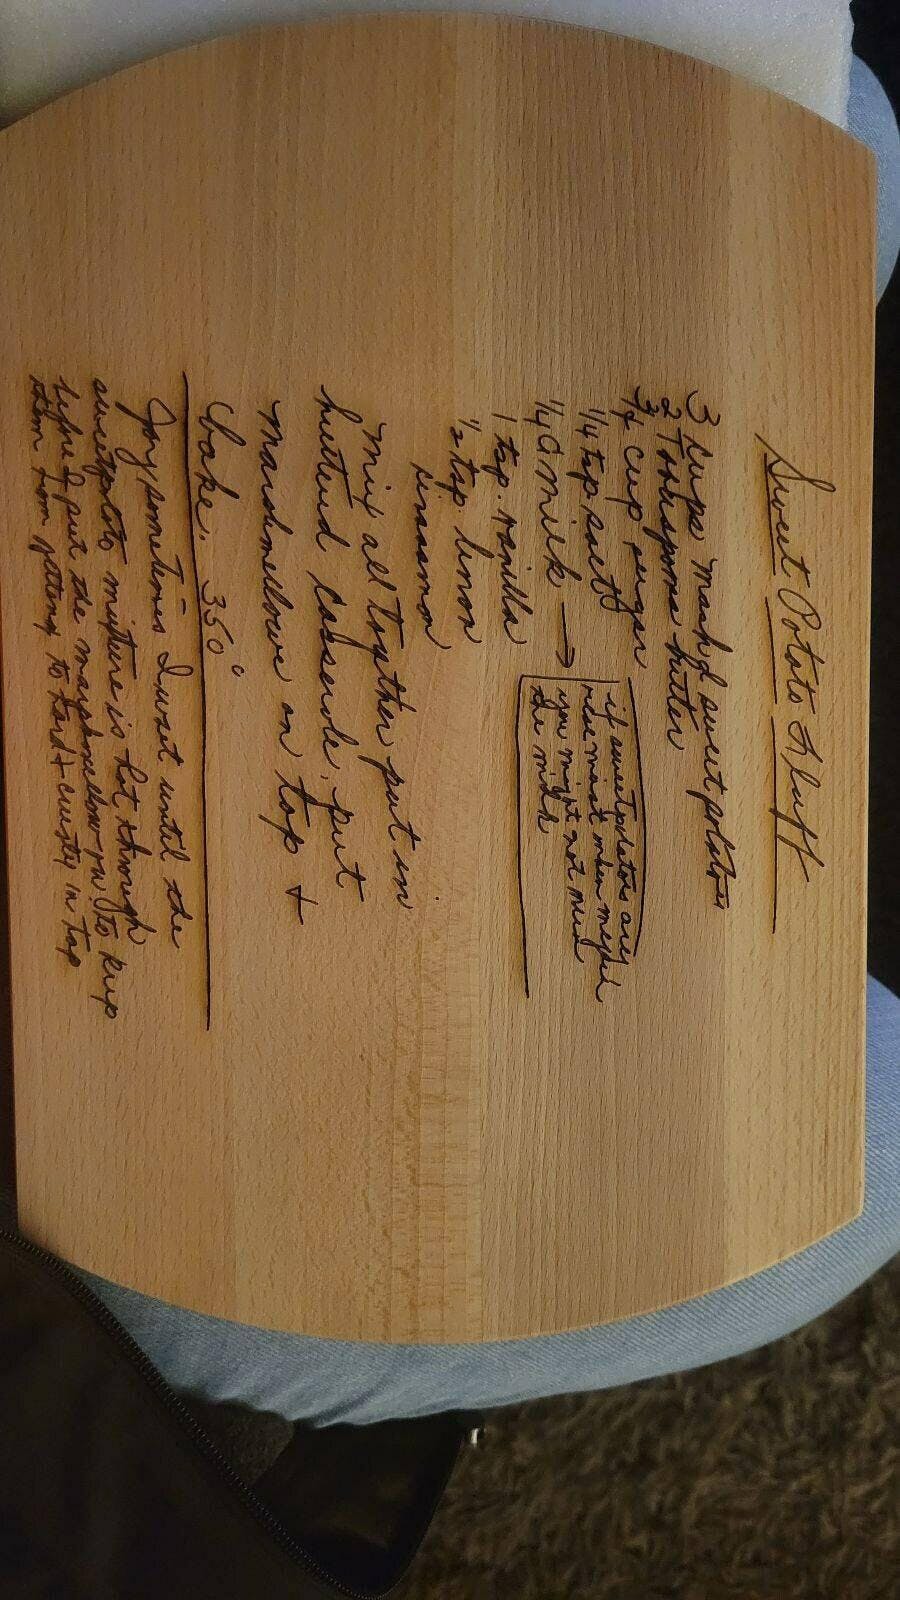 Sweet Potato Fluff
3 cups mash'd sweet potatoes
2 Tablespoons butter
3/4 cup sugar
1/4 tsp. salt
1/4 C milk →
if sweet potatoes are
real moist when
you might not need
the milk
1 tsp. vanilla
1/2 tsp. lemon
cinnamon
Mix all together put in
buttered casserole. put
Marshmellows on top +
bake. 350°
sometimes I wait until the
sweetpotato mixture is hot through
before I put the marshmellows on to keep
them from getting to hard + crusty in top